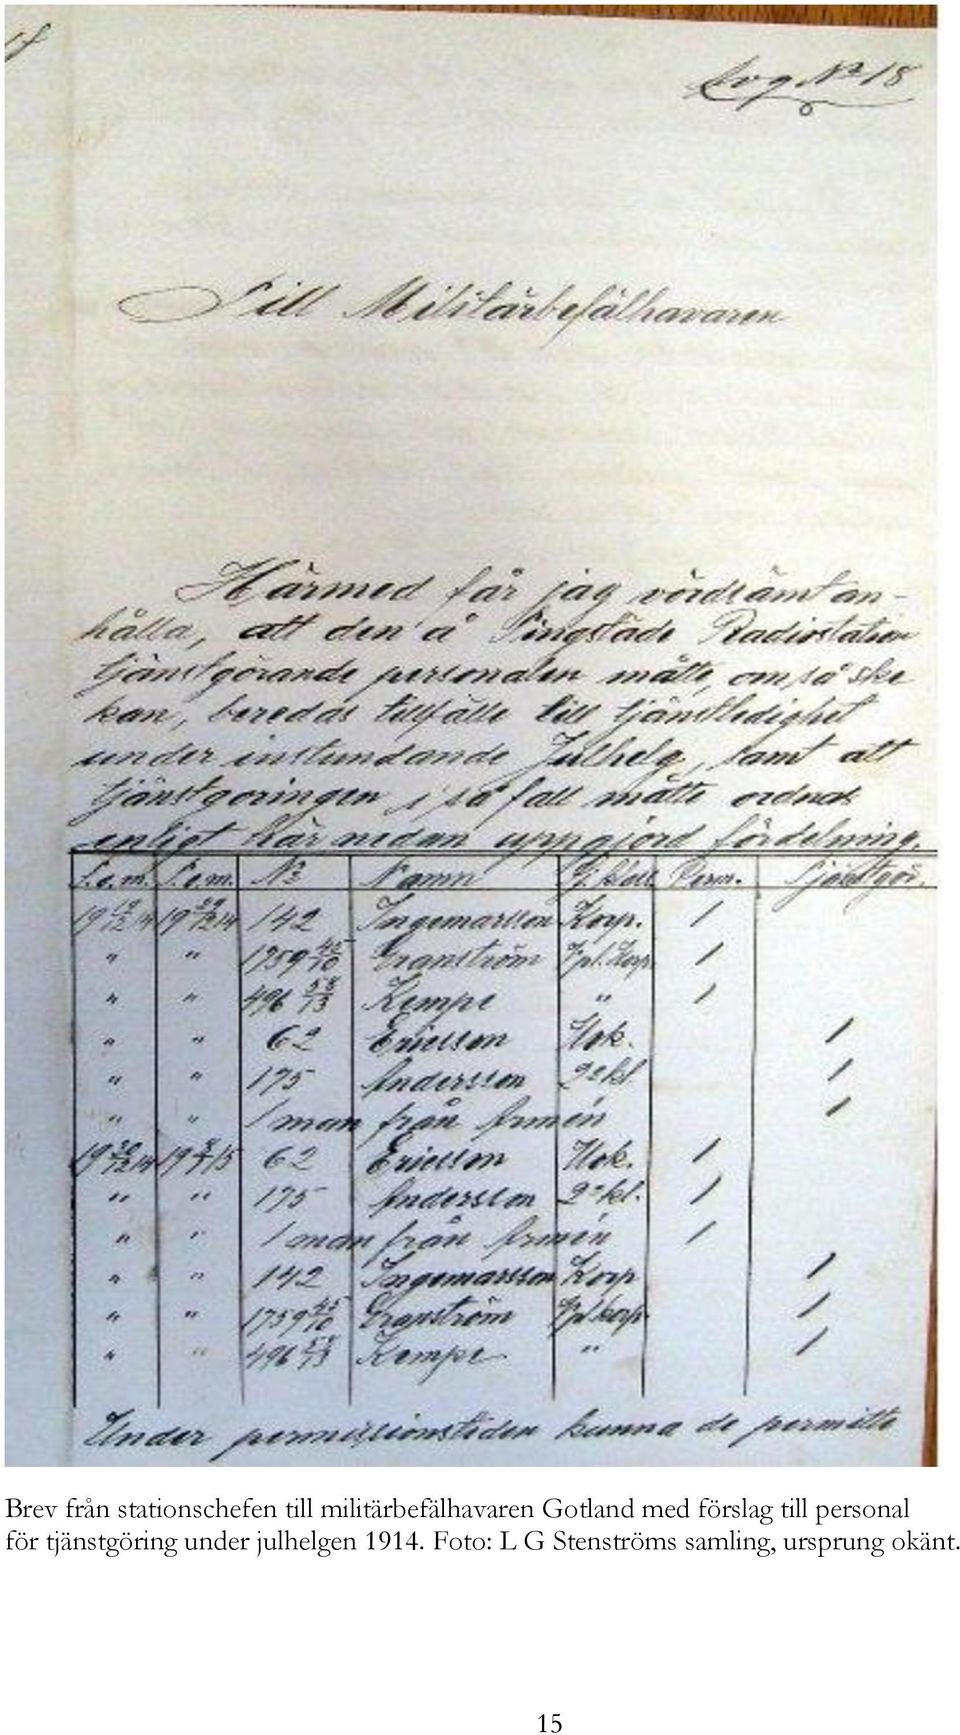 Avg Nº 18
Till Militärbefälhavaren
Härmed får jag vördsamt an-
hålla, att den å Tingstäde Radiostation
tjänstgörande personalen måtte, om så ske
kan, beredas tillfälle till tjänstledighet
under instundande Julhelg, samt att
tjänstgöringen i så fall måtte ordnas
enligt här nedan uppgjord fördelning.
F.o.m. T.o.m. Nº Namn Gr. klass Perm. Tjänstgör.
19 /12 14 19 29/12 14 142 Ingemarsson Korp. 1
" " 1759 /10 Granström Korp 1
" " 496 58/13 Kempe " 1
" " 62 Ericsson 1
" " 175 Andersson 2 kl 1
" " 1 man från Armén 1
19 30/12 14 19 /1 15 62 Ericsson 1
" " 175 Andersson 2 kl. 1
" " 1 man från Armén 1
" " 142 Ingemarsson Korp 1
" " 1759 /10 Granström korp 1
" " 496 58/13 Kempe " 1
Under permissionstiden kunna de permitte
Brev från stationschefen till militärbefälhavaren Gotland med förslag till personal
för tjänstgöring under julhelgen 1914. Foto: L G Stenströms samling, ursprung okänt.
15